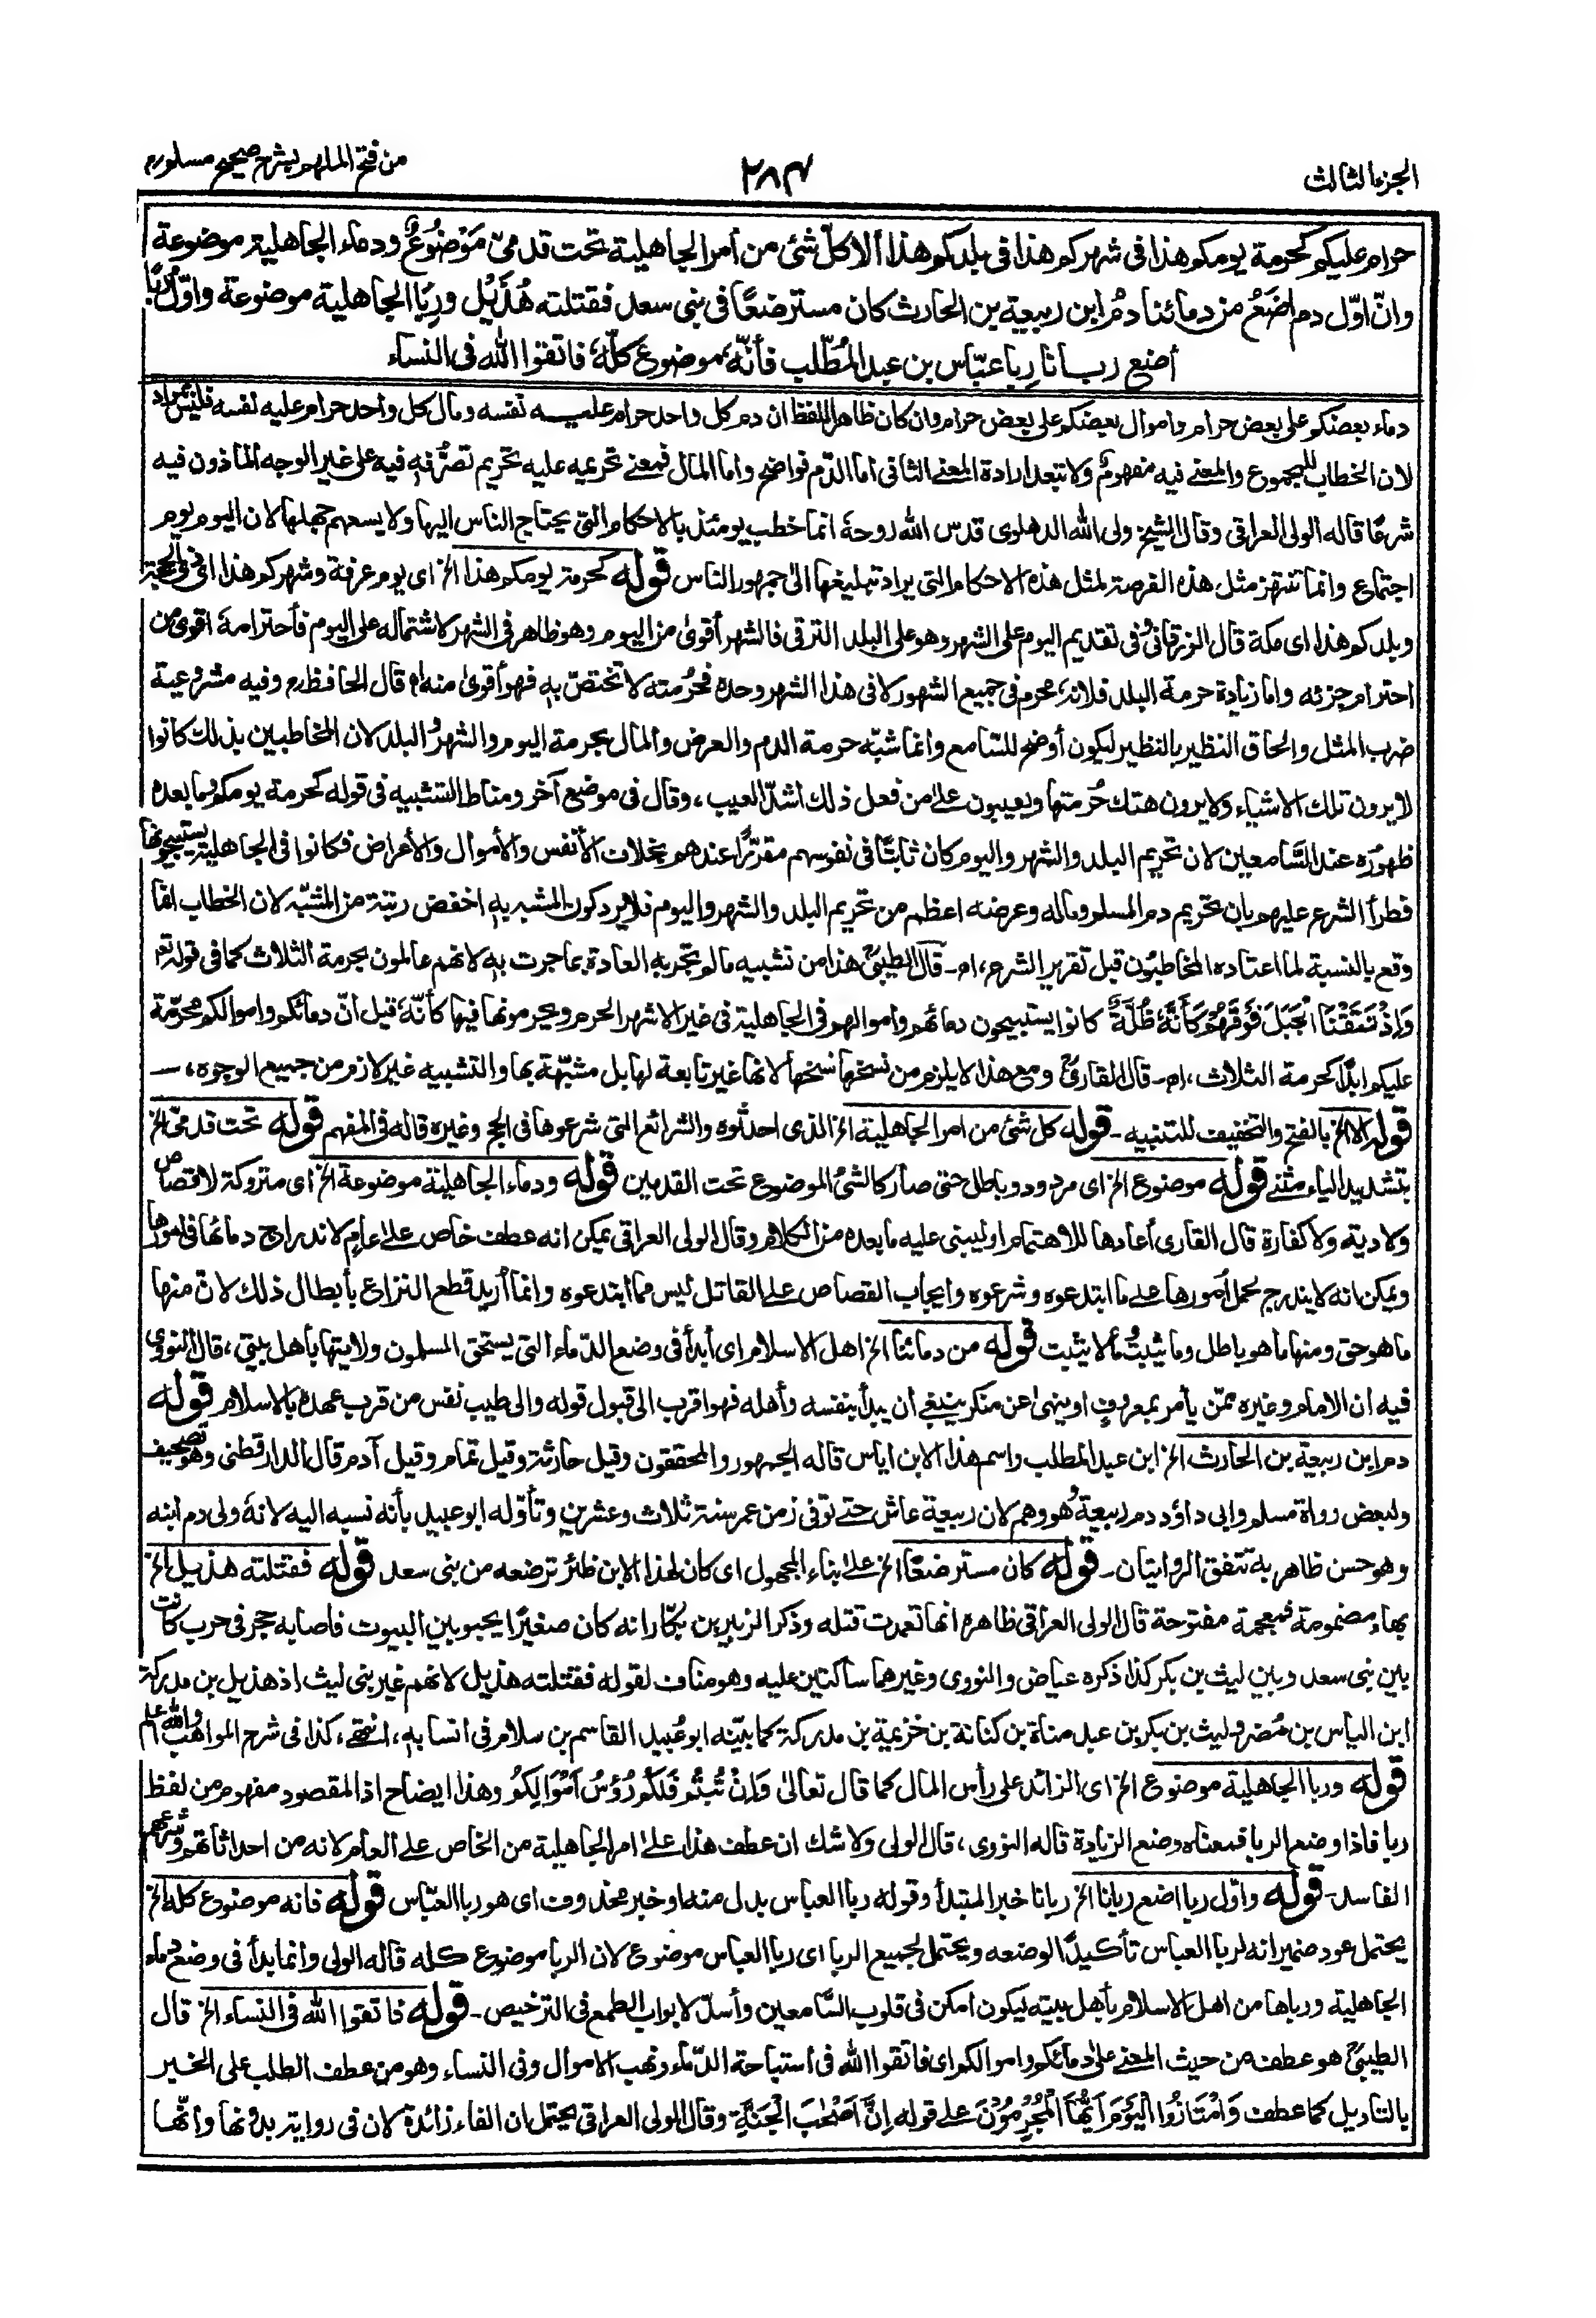 الجزء الثالث
٢٨٣
من فتح الملهم بشرح صحيح مسلم
حرام عليكم كحرمة يومكم هذا فى شهركم هذا فى بلدكم هذا ألا كلّ شئ من أمر الجاهلية تحت قدمىّ مَوْضُوْعٌ ودماء الجاهلية موضوعة
وانّ اوّل دم اضَعُ من دمائنا دمُ ابن ربيعة بن الحارث كان مسترضعًا فى بنى سعد فقتلته هُذَيْل ورِبَا الجاهلية موضوعة واوّل رِبًا
أضع ربانا رِبا عبّاس بن عبد المُطّلب فأنّه موضوع كلّه، فاتقوا الله فى النساء
دماء بعضكم على بعض حرام واموال بعضكم على بعض حرام وان كان ظاهر اللفظ ان دم كل واحد حرام عليه نفسه ومال كل واحد حرام عليه نفسه فليس بمراد
لان الخطاب للمجموع والمعنے فيه مفهوم ولا تبعد ارادة المعنے الثانى اما الدّم فواضح واما المال فمعنے تحريمه عليه تحريم تصرُّفه فيه على غير الوجه الماذون فيه
شرعًا قاله الولى العراقى وقال الشيخ ولى الله الدهلوى قدس الله روحه انما خطب يومئذ بالاحكام التى يحتاج الناس اليها ولا يسعهم جهلها لان اليوم يوم
اجتماع وانما تنتهز مثل هذه الفرصة لمثل هذه الاحكام التى يراد تبليغها الى جمهور الناس قوله كحرمة يومكم هذا الخ اى يوم عرفة وشهركم هذا اى ذى الحجة
وبلدكم هذا اى مكة قال الزرقانى وفى تقديم اليوم على الشهر وهو على البلد الترقى فالشهر أقوىٰ من اليوم وهو ظاهر فى الشهر لاشتماله على اليوم فأحترامه اقوىٰ من
احترام جزئه واما زيادة حرمة البلد فلانه محرم فى جميع الشهور لا فى هذا الشهر وحده فحُرمته لا تختصّ به فهو أقوىٰ منه اھ قال الحافظ رح وفيه مشروعية
ضرب المثل والحاق النظير بالنظير ليكون أوضح للسّامع وانما شبّه حرمة الدم والعرض والمال بحرمة اليوم والشهر والبلد لان المخاطبين بذلك كانوا
لا يرون تلك الاشياء ولا يرون هتك حُرمتها ويعيبون علىٰ من فعل ذلك اشدّ العيب، وقال فى موضع آخر ومناط التشبيه فى قوله كحرمة يومكم وما بعده
ظهوره عند السَّامعين لان تحريم البلد والشهر واليوم كان ثابتًا فى نفوسهم مقررًا عندهم بخلاف الأنفس والأموال والأعراض فكانوا فى الجاهلية يستبيحونها
فطرأ الشرع عليهم بان تحريم دم المسلم وماله وعرضه اعظم من تحريم البلد والشهر واليوم فلا يرد كون المشبه به اخفض رتبة من المشبّه لان الخطاب انما
وقع بالنسبة لما اعتاده المخاطبُون قبل تقرير الشرع، اھ - قال الطيبىؒ هذا من تشبيه ما لم تجر به العادة بما جرت به لانهم عالمون بحرمة الثلاث كما فى قوله تعالى
وَاِذْ نَتَقْنَا الْجَبَلَ فَوْقَهُمْ كَاَنَّهٗ ظُلَّةٌ كانوا يستبيحون دمائهم واموالهم فى الجاهلية فى غير الاشهر الحرم ويحرمونها فيها كأنّه، قيل انّ دمائكم واموالكم محرّمة
عليكم ابدًا كحرمة الثلاث، اھ - قال القارىؒ ومع هذا لا يلزم من نسخها نسخها لانها غير تابعة لها بل مشبّهة بها والتشبيه غير لازم من جميع الوجوه، —
قوله الا الخ بالفتح والتخفيف للتنبيه - قوله كل شئ من امر الجاهلية الخ الذى احدثوه والشرائع التى شرعوها فى الحج وغيره قاله فى المفهم قوله تحت قدمىّ الخ
بتشديد الياء مثنے قوله موضوع الخ اى مردود وباطل حتى صار كالشئ الموضوع تحت القدمين قوله ودماء الجاهلية موضوعة الخ اى متروكة لا قصاص
ولا دية ولا كفارة قال القارى أعادها للاهتمام او ليبنى عليه ما بعده من الكلام وقال الولى العراقى يمكن انه عطف خاص علىٰ عام لاندراج دمائها فى امورها
ويمكن انه لا يندرج لحمل أمورها علىٰ ما ابتدعوه وشرعوه وايجاب القصاص على القاتل ليس مما ابتدعوه وانما أريد قطع النزاع بأبطال ذلك لانّ منها
ما هو حق ومنها ما هو باطل وما يثبت وما لا يثبت قوله من دمائنا الخ اهل الاسلام اى أبدأ فى وضع الدّماء التى يستحق المسلمون ولايتها بأهل بيتى، قال النووى
فيه ان الامام وغيره ممّن يأمر بمعروفٍ او ينهىٰ عن منكر ينبغى أن يبدأ بنفسه وأهله فهو اقرب الى قبول قوله والى طيب نفس من قرب عهده بالاسلام قوله
دم ابن ربيعة بن الحارث الخ ابن عبد المطلب واسم هذا الابن اياس قاله الجمهور والمحققون وقيل حارثة وقيل تمام وقيل آدم قال الدارقطنى وهو تصحيف
ولبعض رواة مسلم وابى داؤد دم ربيعة وهو وهم لان ربيعة عاش حتے توفى زمن عمر سنة ثلاث وعشرين وتأوّله ابو عبيد بأنه نسبه اليه لانه ولى دم ابنه
وهو حسن ظاهر به تتفق الروايتان - قوله كان مسترضعًا الخ علىٰ بناء المجهول اى كان لهذا الابن ظئر ترضعه من بنى سعد قوله فقتلته هذيل الخ
بهاء مضمومة فمعجمة مفتوحة قال الولى العراقى ظاهره انها تعمدت قتله وذكر الزبير بن بكّار انه كان صغيرًا يحبو بين البيوت فاصابه حجر فى حرب كانت
بين بنى سعد وبين ليث بن بكر كذا ذكره عياض والنووى وغيرهما ساكتين عليه وهو مناف لقوله فقتلته هذيل لانهم غير بنى ليث اذ هذيل بن مدركة
ابن الياس بن مُضر وليث بن بكر بن عبد مناة بن كنانة بن خزيمة بن مدركة كما بيّنه ابو عُبيد القاسم بن سلام فى انسابه، انتهے، كذا فى شرح المواهب والله اعلم
قوله وربا الجاهلية موضوع الخ اى الزائد على رأس المال كما قال تعالىٰ وَاِنْ تُبْتُمْ فَلَكُمْ رُؤُسُ اَمْوَالِكُمْ وهذا ايضاح اذ المقصود مفهوم من لفظ
ربا فاذا وضع الربا فمعناه وضع الزيادة قاله النووى، قال الولى ولا شك ان عطف هذا علىٰ امر الجاهلية من الخاص على العام لانه من احداثاتهم وشرعهم
الفاسد - قوله واوّل ربا اضع ربانا الخ ربانا خبر المبتدأ وقوله ربا العباس بدل منه او خبر محذوف اى هو ربا العبّاس قوله فانه موضوع كله الخ
يحتمل عود ضمير انه لربا العباس تأكيدًا لوضعه ويحتمل لجميع الربا اى ربا العباس موضوع لان الربا موضوع كله قاله الولى وانما بدأ فى وضع دماء
الجاهلية ورباها من اهل الاسلام بأهل بيته ليكون امكن فى قلوب السَّامعين وأسدّ لابواب الطمع فى الترخيص - قوله فاتقوا الله فى النساء الخ قال
الطيبىؒ هو عطف من حيث المعنے علىٰ دمائكم واموالكم اى فاتقوا الله فى استباحة الدّماء ونهب الاموال وفى النساء وهو من عطف الطلب على الخبر
بالتاديل كما عطف وَامْتَازُوا الْيَوْمَ اَيُّهَا الْمُجْرِمُوْنَ علىٰ قوله اِنَّ اَصْحٰبَ الْجَنَّةِ وقال الولى العراقى يحتمل ان الفاء زائدة لان فى رواية بدونها وانّها